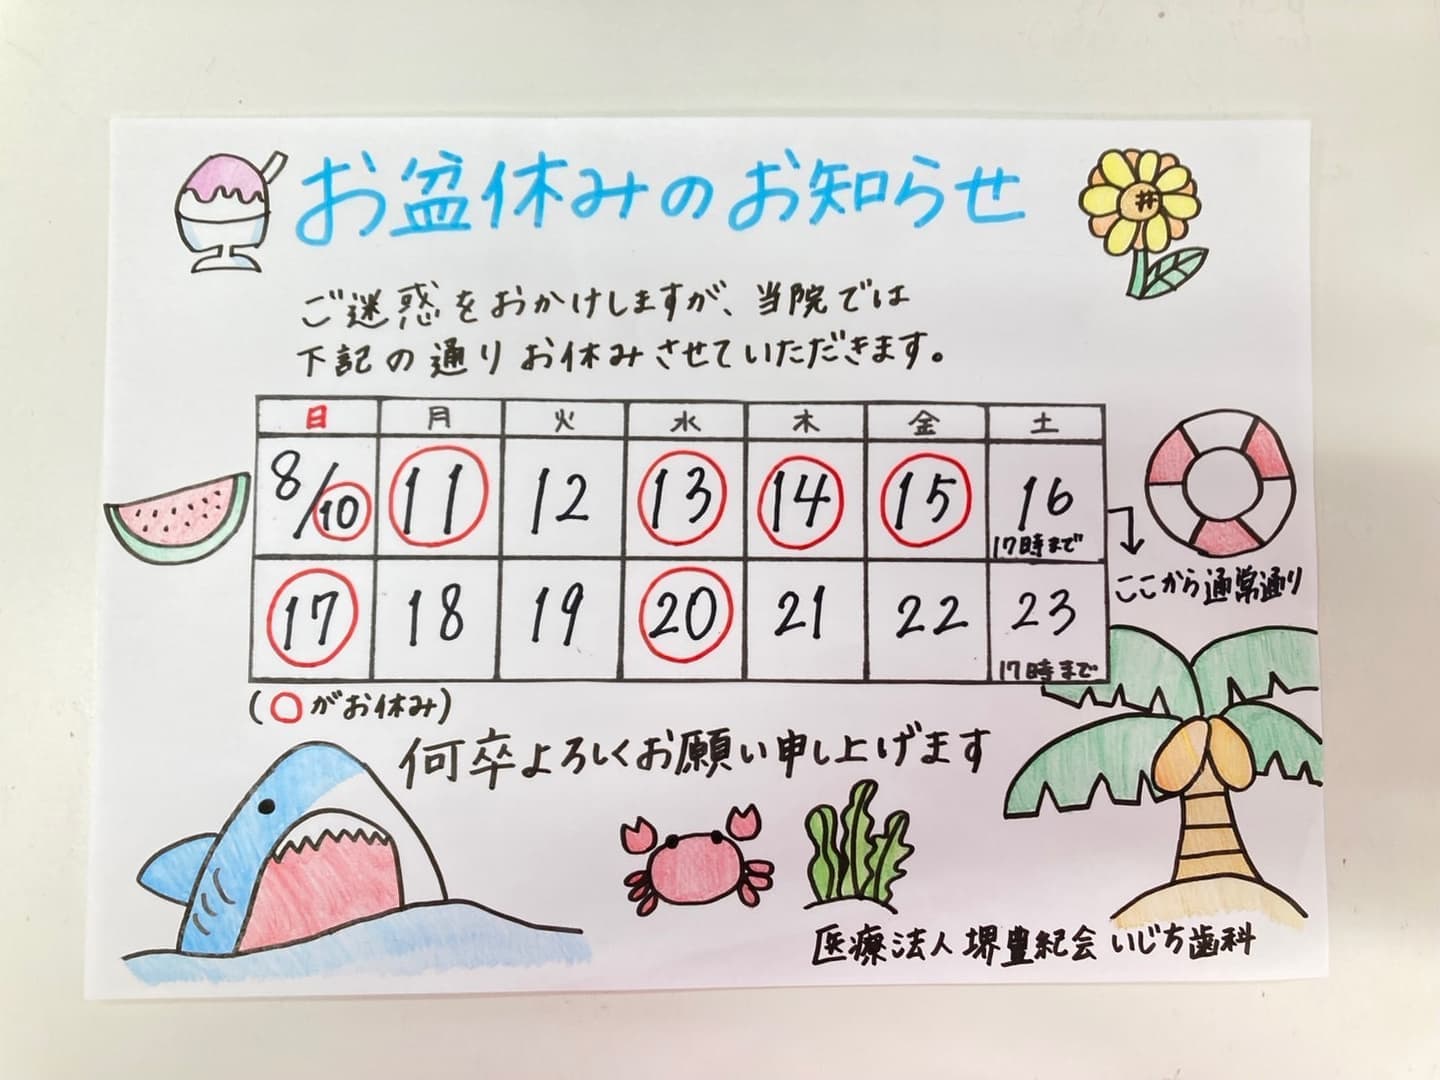 お盆休みのお知らせ
ご迷惑をおかけしますが、当院では
下記の通りお休みさせていただきます。
日 月 火 水 木 金 土
8/10 11 12 13 14 15 16
17時まで
ここから通常通り
17 18 19 20 21 22 23
17時まで
(○がお休み)
何卒よろしくお願い申し上げます
医療法人 堺豊紀会 いじち歯科